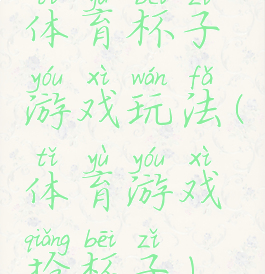 tǐ yù bēi zi
体育杯子
yóu xì wán fǎ
游戏玩法(
tǐ yù yóu xì
体育游戏
qiǎng bēi zǐ
抢杯子)